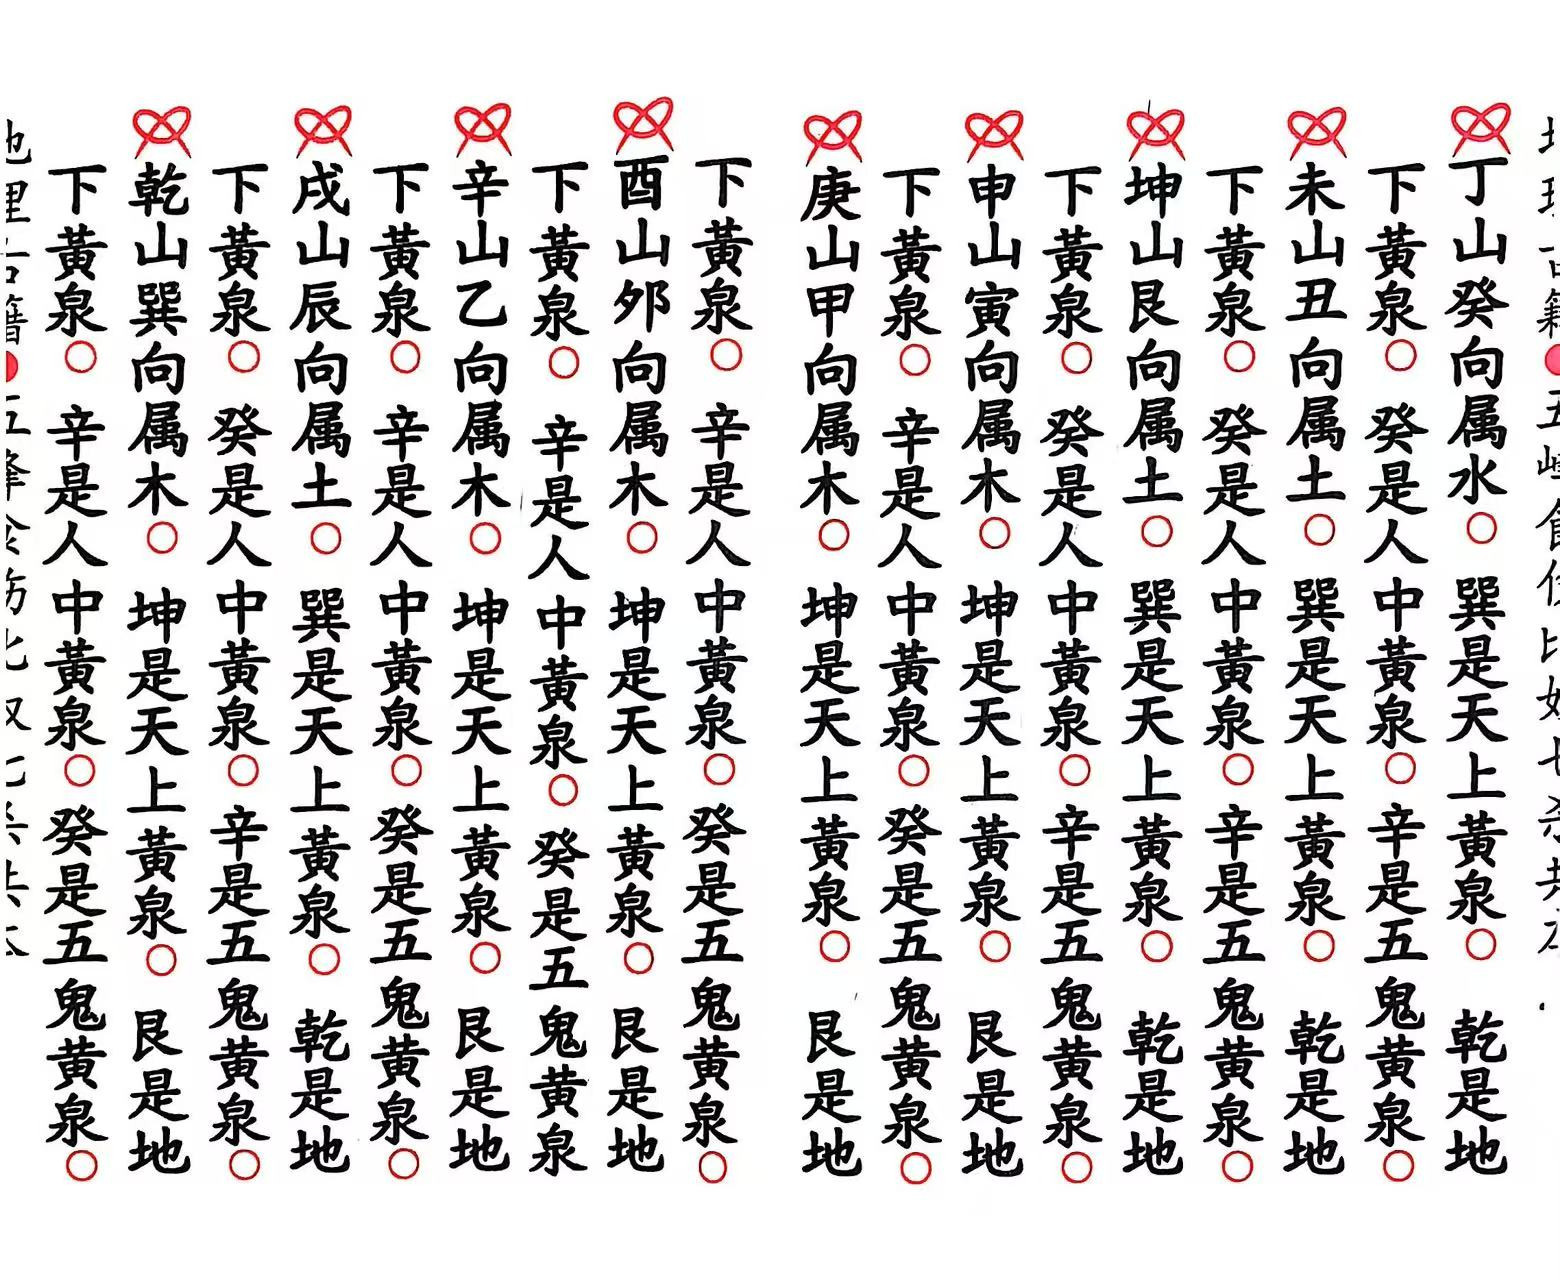 丁山癸向属水○巽是天上黃泉○乾是地
下黃泉○癸是人中黃泉○辛是五鬼黄泉○
未山丑向属土○巽是天上黃泉○乾是地
下黃泉○癸是人中黃泉○辛是五鬼黄泉○
坤山艮向属土○巽是天上黃泉○乾是地
下黃泉○癸是人中黃泉○辛是五鬼黄泉○
申山寅向属木○坤是天上黃泉○艮是地
下黃泉○辛是人中黃泉○癸是五鬼黄泉○
庚山甲向属木○坤是天上黃泉○艮是地
下黃泉○辛是人中黃泉○癸是五鬼黄泉○
酉山夘向属木○坤是天上黃泉○艮是地
下黃泉○辛是人中黃泉○癸是五鬼黄泉
辛山乙向属木○坤是天上黃泉○艮是地
下黃泉○辛是人中黃泉○癸是五鬼黄泉○
戌山辰向属土○巽是天上黃泉○乾是地
下黃泉○癸是人中黃泉○辛是五鬼黄泉○
乾山巽向属木○坤是天上黃泉○艮是地
下黃泉○辛是人中黃泉○癸是五鬼黄泉○